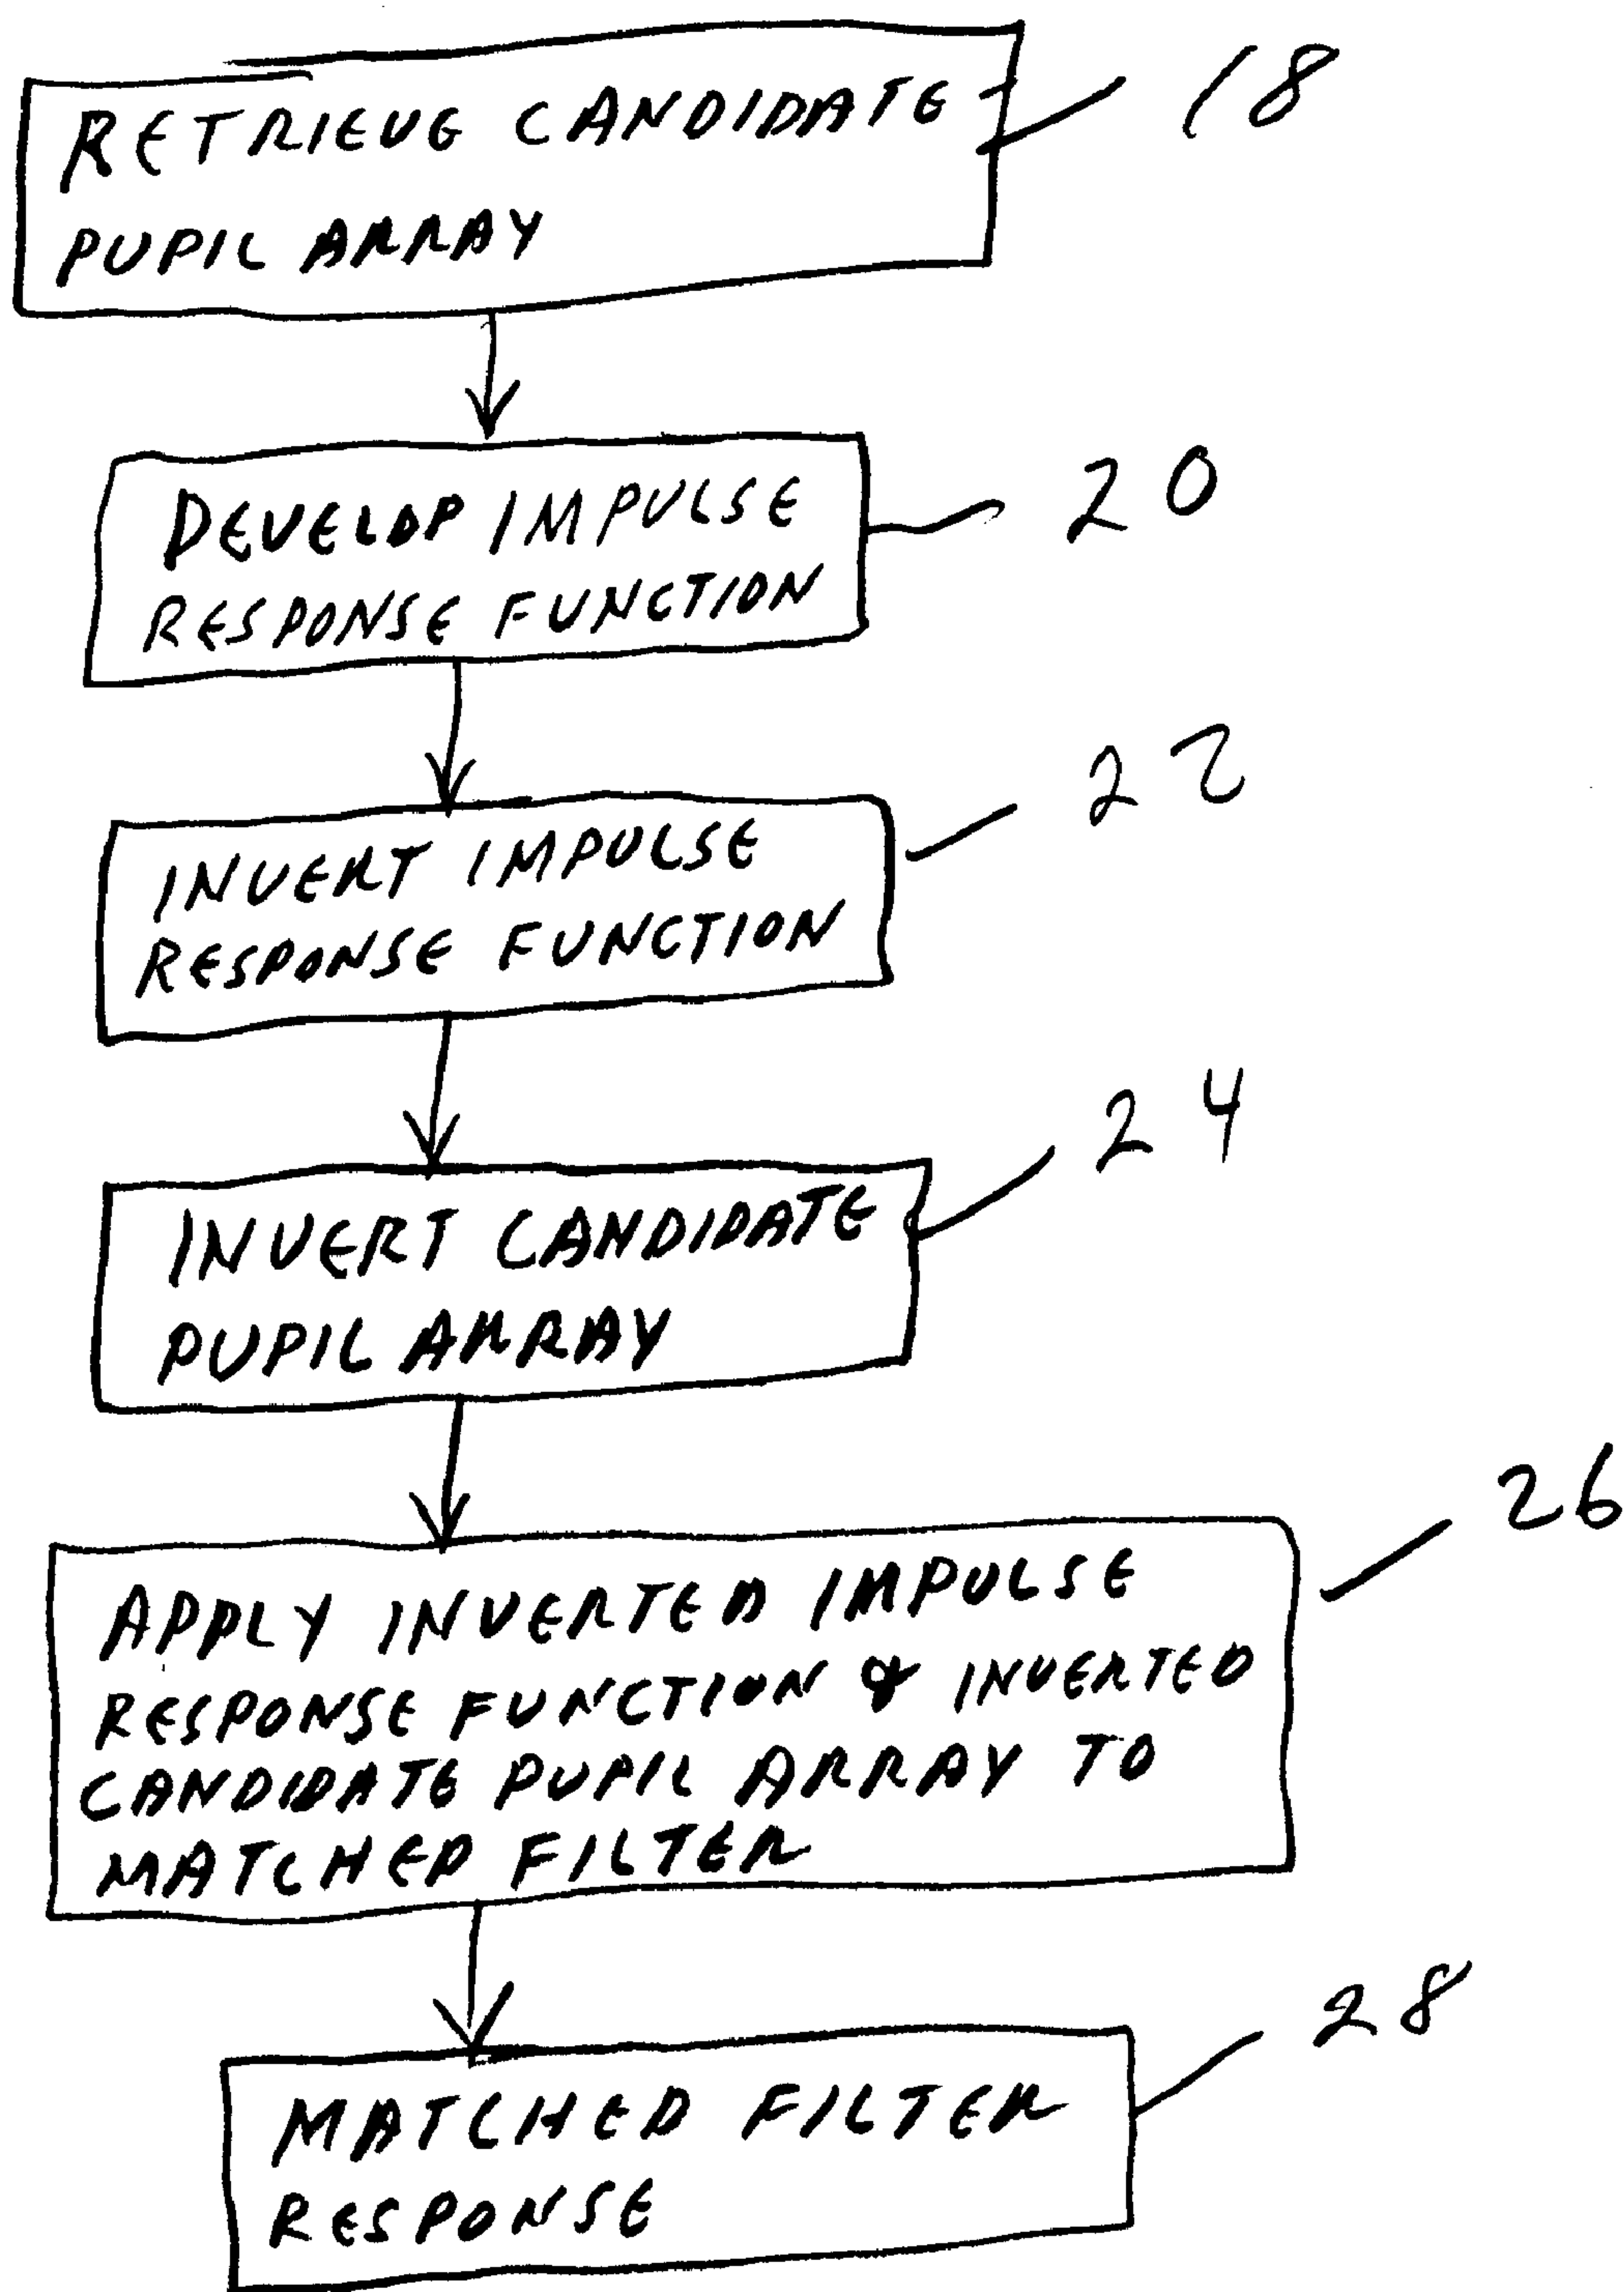 RETRIEVE CANDIDATE
PUPIL ARRAY
18
DEVELOP IMPULSE
RESPONSE FUNCTION
20
INVERT IMPULSE
RESPONSE FUNCTION
22
INVERT CANDIDATE
PUPIL ARRAY
24
APPLY INVERTED IMPULSE
RESPONSE FUNCTION & INVERTED
CANDIDATE PUPIL ARRAY TO
MATCHED FILTER
26
MATCHED FILTER
RESPONSE
28